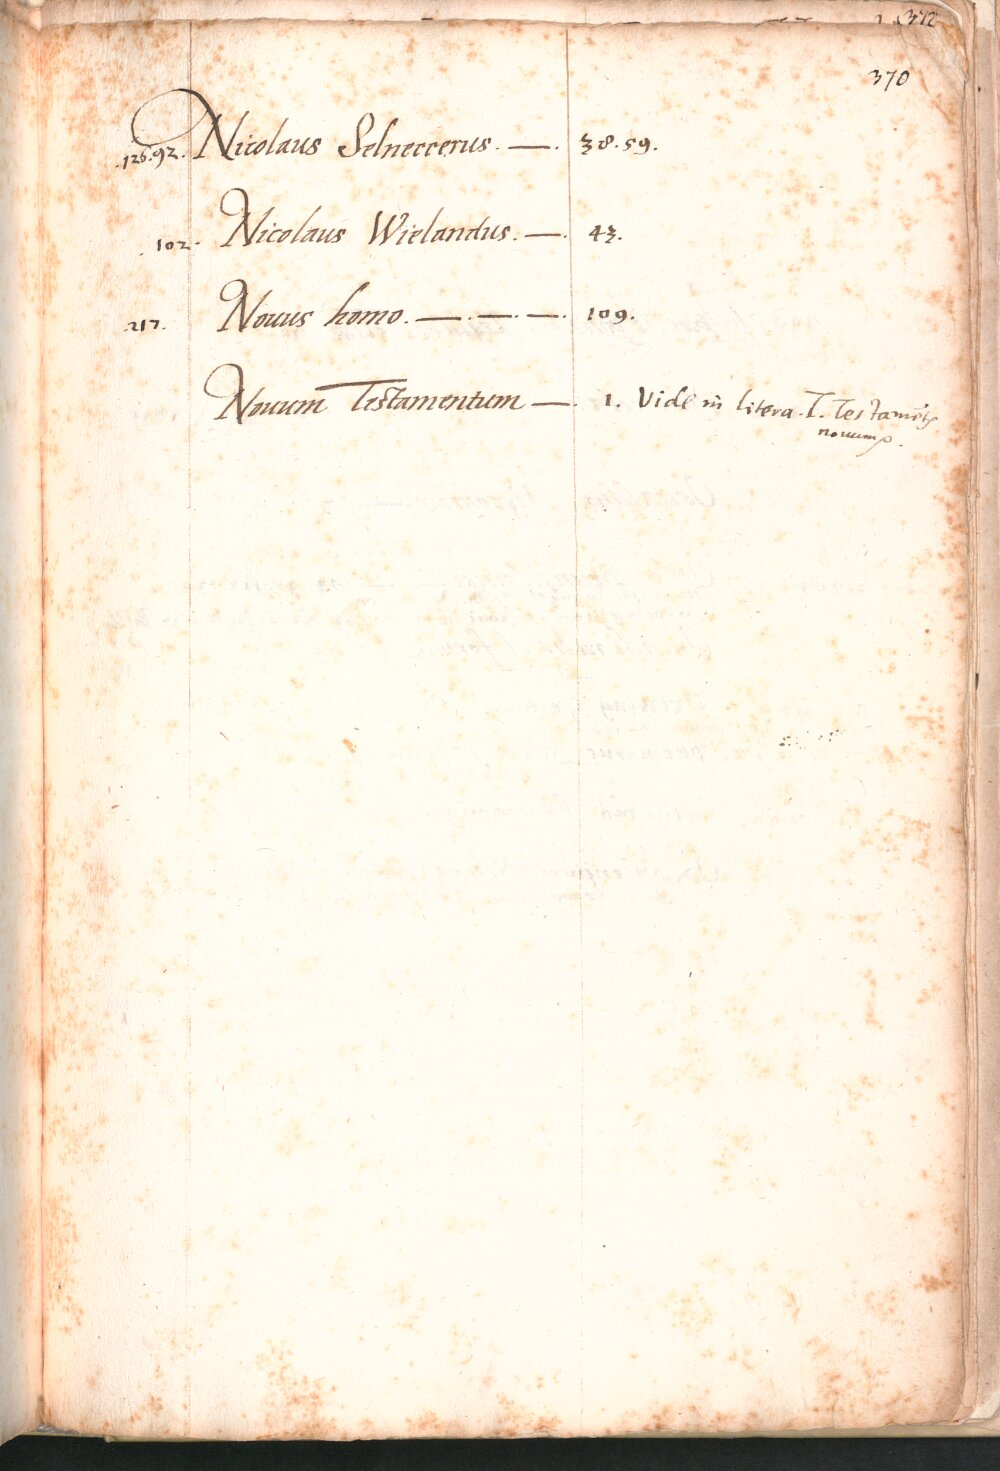 372
370
.126.92. Nicolaus Selneccerus. —. 38.59.
102. Nicolaus Wielandus. —. 43.
217. Nouus homo. —. —. —. 109.
Nouum Testamentum —. 1. Vide in litera. T. Testamẽtũ
nouum.